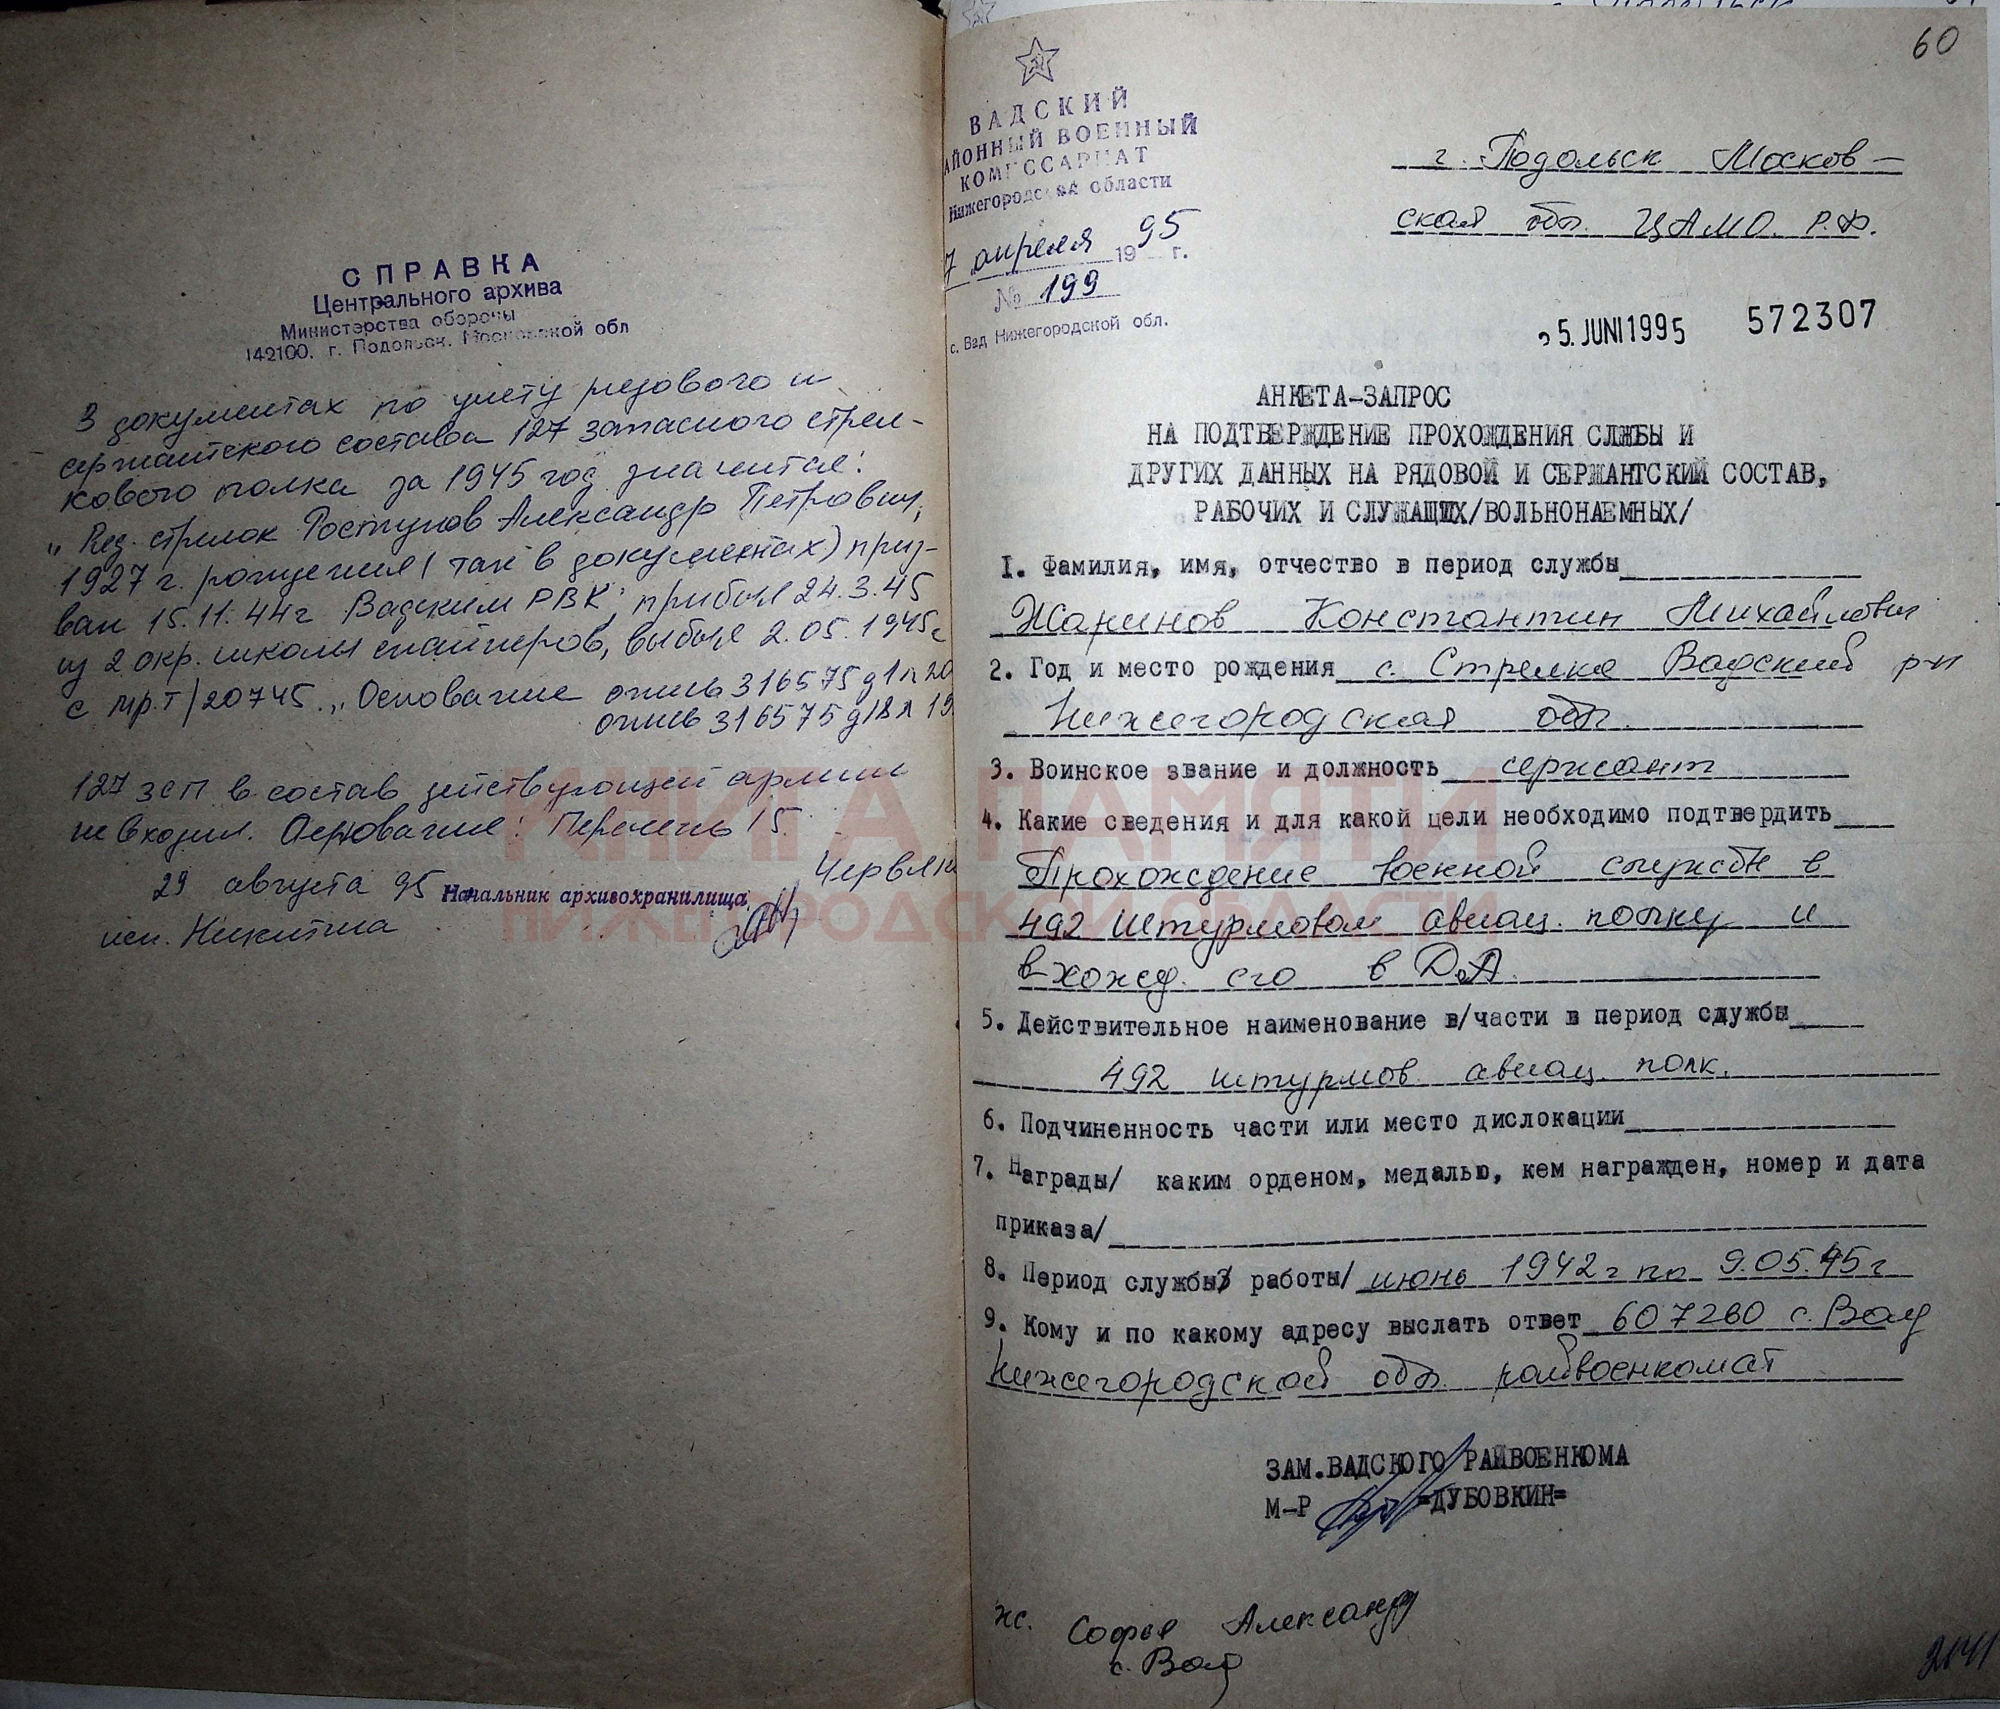 СПРАВКА
Центрального архива
Министерства обороны
142100, г. Подольск, Московской обл
В документах по учету рядового и
сержантского состава 127 запасного стрел-
кового полка за 1945 год значится:
"Ряд. стрелок Ростунов Александр Петрович,
1927 г. рождения (так в документах) приз-
ван 15.11.44г Вадским РВК, прибыл 24.3.45
из 2 окр. школы снайперов, выбыл 2.05.1945г
с мр.т/20745." Основание опись 316575 д1 л 20
опись 316575 д18 л 19
127 зсп в состав действующей армии
не входил. Основание: Перечень 15.
29 августа 95 Начальник архивохранилища
исп. Никитина
60
ВАДСКИЙ
РАЙОННЫЙ ВОЕННЫЙ
КОМИССАРИАТ
Нижегородской области
7 апреля 1995 г.
№ 199
с. Вад Нижегородской обл.
г. Подольск Москов-
ская обл. ЦАМО. Р.Ф.
5. JUNI 1995 572307
АНКЕТА-ЗАПРОС
НА ПОДТВЕРЖДЕНИЕ ПРОХОЖДЕНИЯ СЛЖБЫ И
ДРУГИХ ДАННЫХ НА РЯДОВОЙ И СЕРЖАНТСКИЙ СОСТАВ,
РАБОЧИХ И СЛУЖАЩИХ/ВОЛЬНОНАЕМНЫХ/
1. Фамилия, имя, отчество в период службы
Жаринов Константин Михайлович
2. Год и место рождения с. Стрелка Вадский р-н
Нижегородская обл.
3. Воинское звание и должность сержант
4. Какие сведения и для какой цели необходимо подтвердить
Прохождение военной службы в
492 штурмовом авиац. полку и
вхожд. его в Д.А.
5. Действительное наименование в/части в период службы
492 штурмов. авиац. полк.
6. Подчиненность части или место дислокации
7. Награды/ каким орденом, медалью, кем награжден, номер и дата
приказа/
8. Период службы/ работы/ июнь 1942г по 9.05.45г
9. Кому и по какому адресу выслать ответ 607260 с. Вад
Нижегородской обл. райвоенкомат
ЗАМ.ВАДСКОГО РАЙВОЕНКОМА
М-Р =ДУБОВКИН=
Софья Александр
с. Вад
КНИГА ПАМЯТИ
НИЖЕГОРОДСКОЙ ОБЛАСТИ